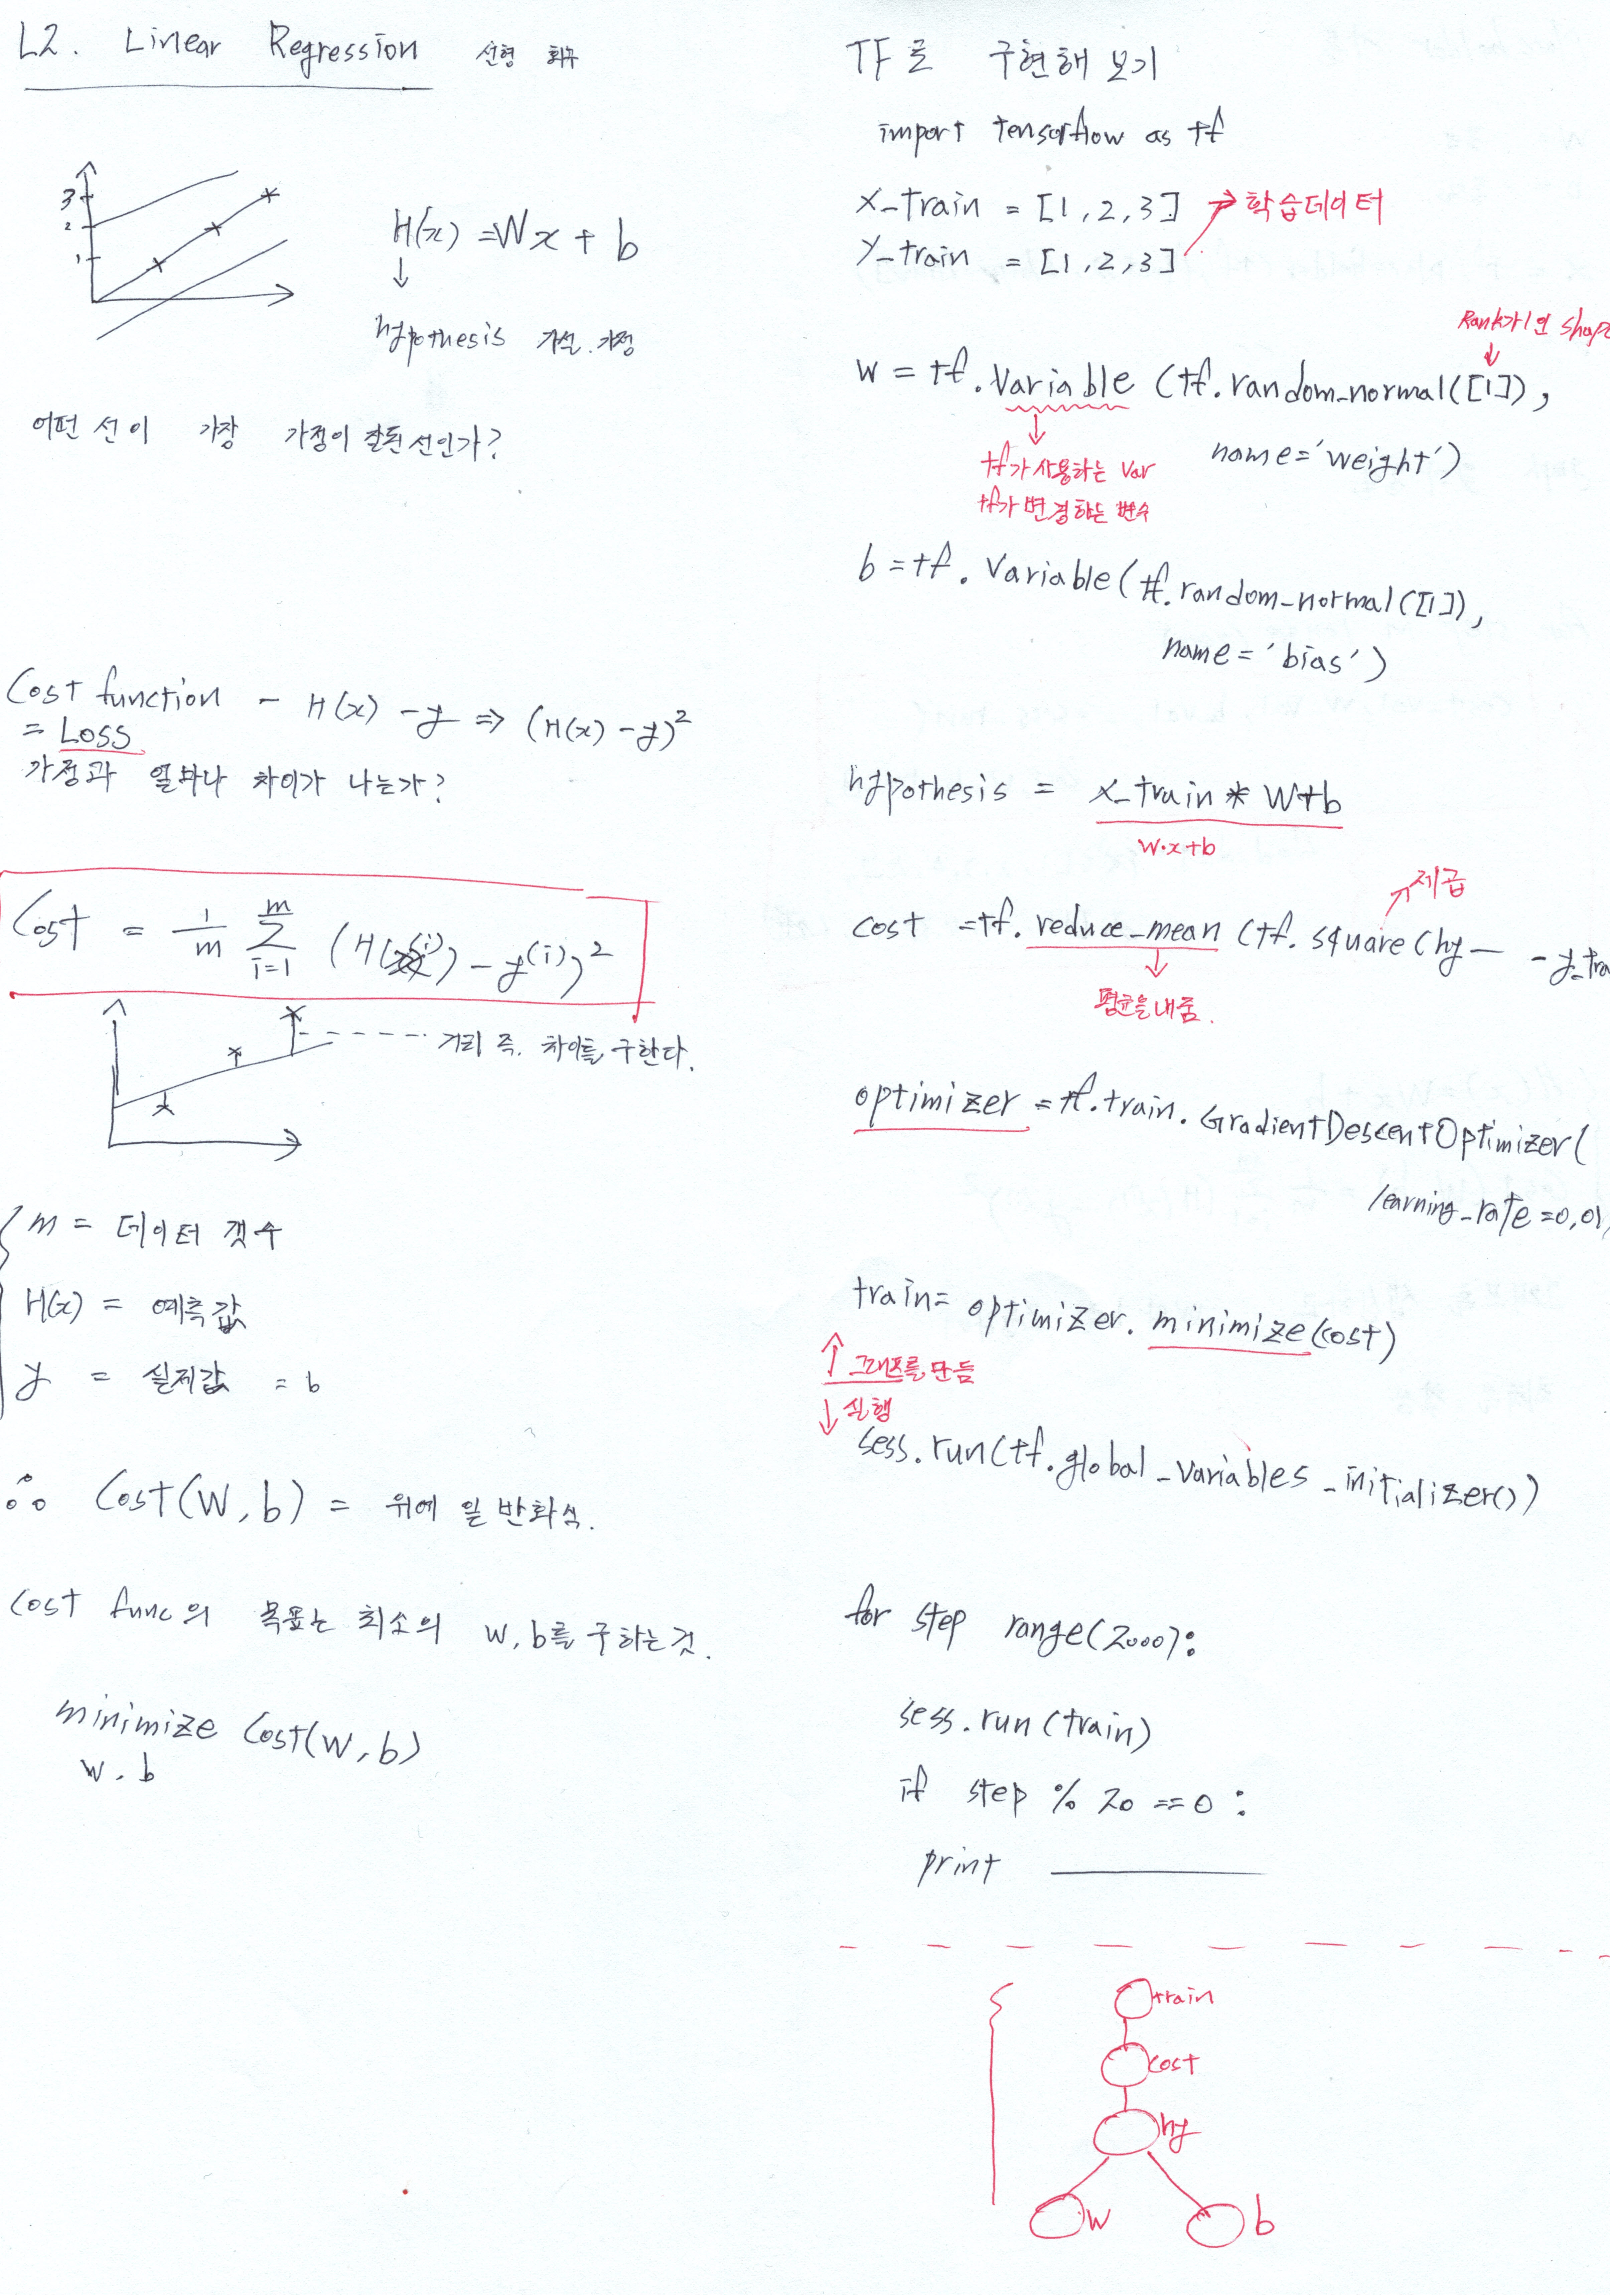 L2. Linear Regression 선형 회귀
3
2
1
H(x) = Wx + b
↓
hypothesis 가설. 가정
어떤 선이 가장 가정이 잘된 선인가?
Cost function - H(x) - y ⇒ (H(x) - y)²
= Loss
가정과 얼마나 차이가 나는가?
Cost = 1/m Σ i=1 m (H(x⁽ⁱ⁾) - y⁽ⁱ⁾)²
거리 즉. 차이를 구한다.
m = 데이터 갯수
H(x) = 예측값
y = 실제값 = b
∴ Cost(W, b) = 위에 일반화식.
Cost func의 목표는 최소의 W, b를 구하는것.
minimize Cost(W, b)
W, b
TF로 구현해 보기
import tensorflow as tf
x_train = [1, 2, 3] → 학습데이터
y_train = [1, 2, 3]
Rank가 1인 shape
↓
W = tf.Variable (tf.random_normal([1]),
name='weight')
↓
tf가 사용하는 var
tf가 변경하는 변수
b = tf.Variable(tf.random_normal([1]),
name='bias')
hypothesis = x_train * W+b
W·x+b
제곱
cost = tf.reduce_mean (tf.square(hy— - y_tra
↓
평균을 내줌.
optimizer = tf.train.GradientDescentOptimizer(
learning_rate=0.01)
train= optimizer.minimize(cost)
↑ 그래프를 만듬
↓ 실행
sess.run(tf.global_variables_initializer())
for step range(2000):
sess.run(train)
if step % 20 == 0 :
print
train
cost
hy
W
b